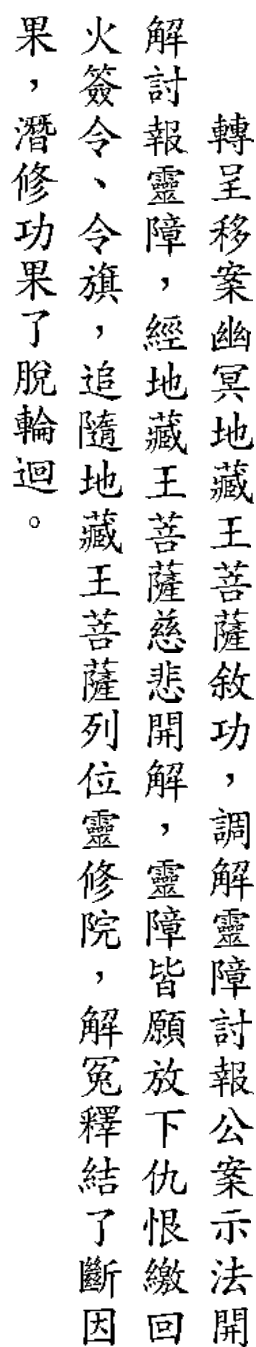 轉呈移案幽冥地藏王菩薩敘功，調解靈障討報公案示法開
解討報靈障，經地藏王菩薩慈悲開解，靈障皆願放下仇恨繳回
火簽令、令旗，追隨地藏王菩薩列位靈修院，解冤釋結了斷因
果，潛修功果了脫輪迴。